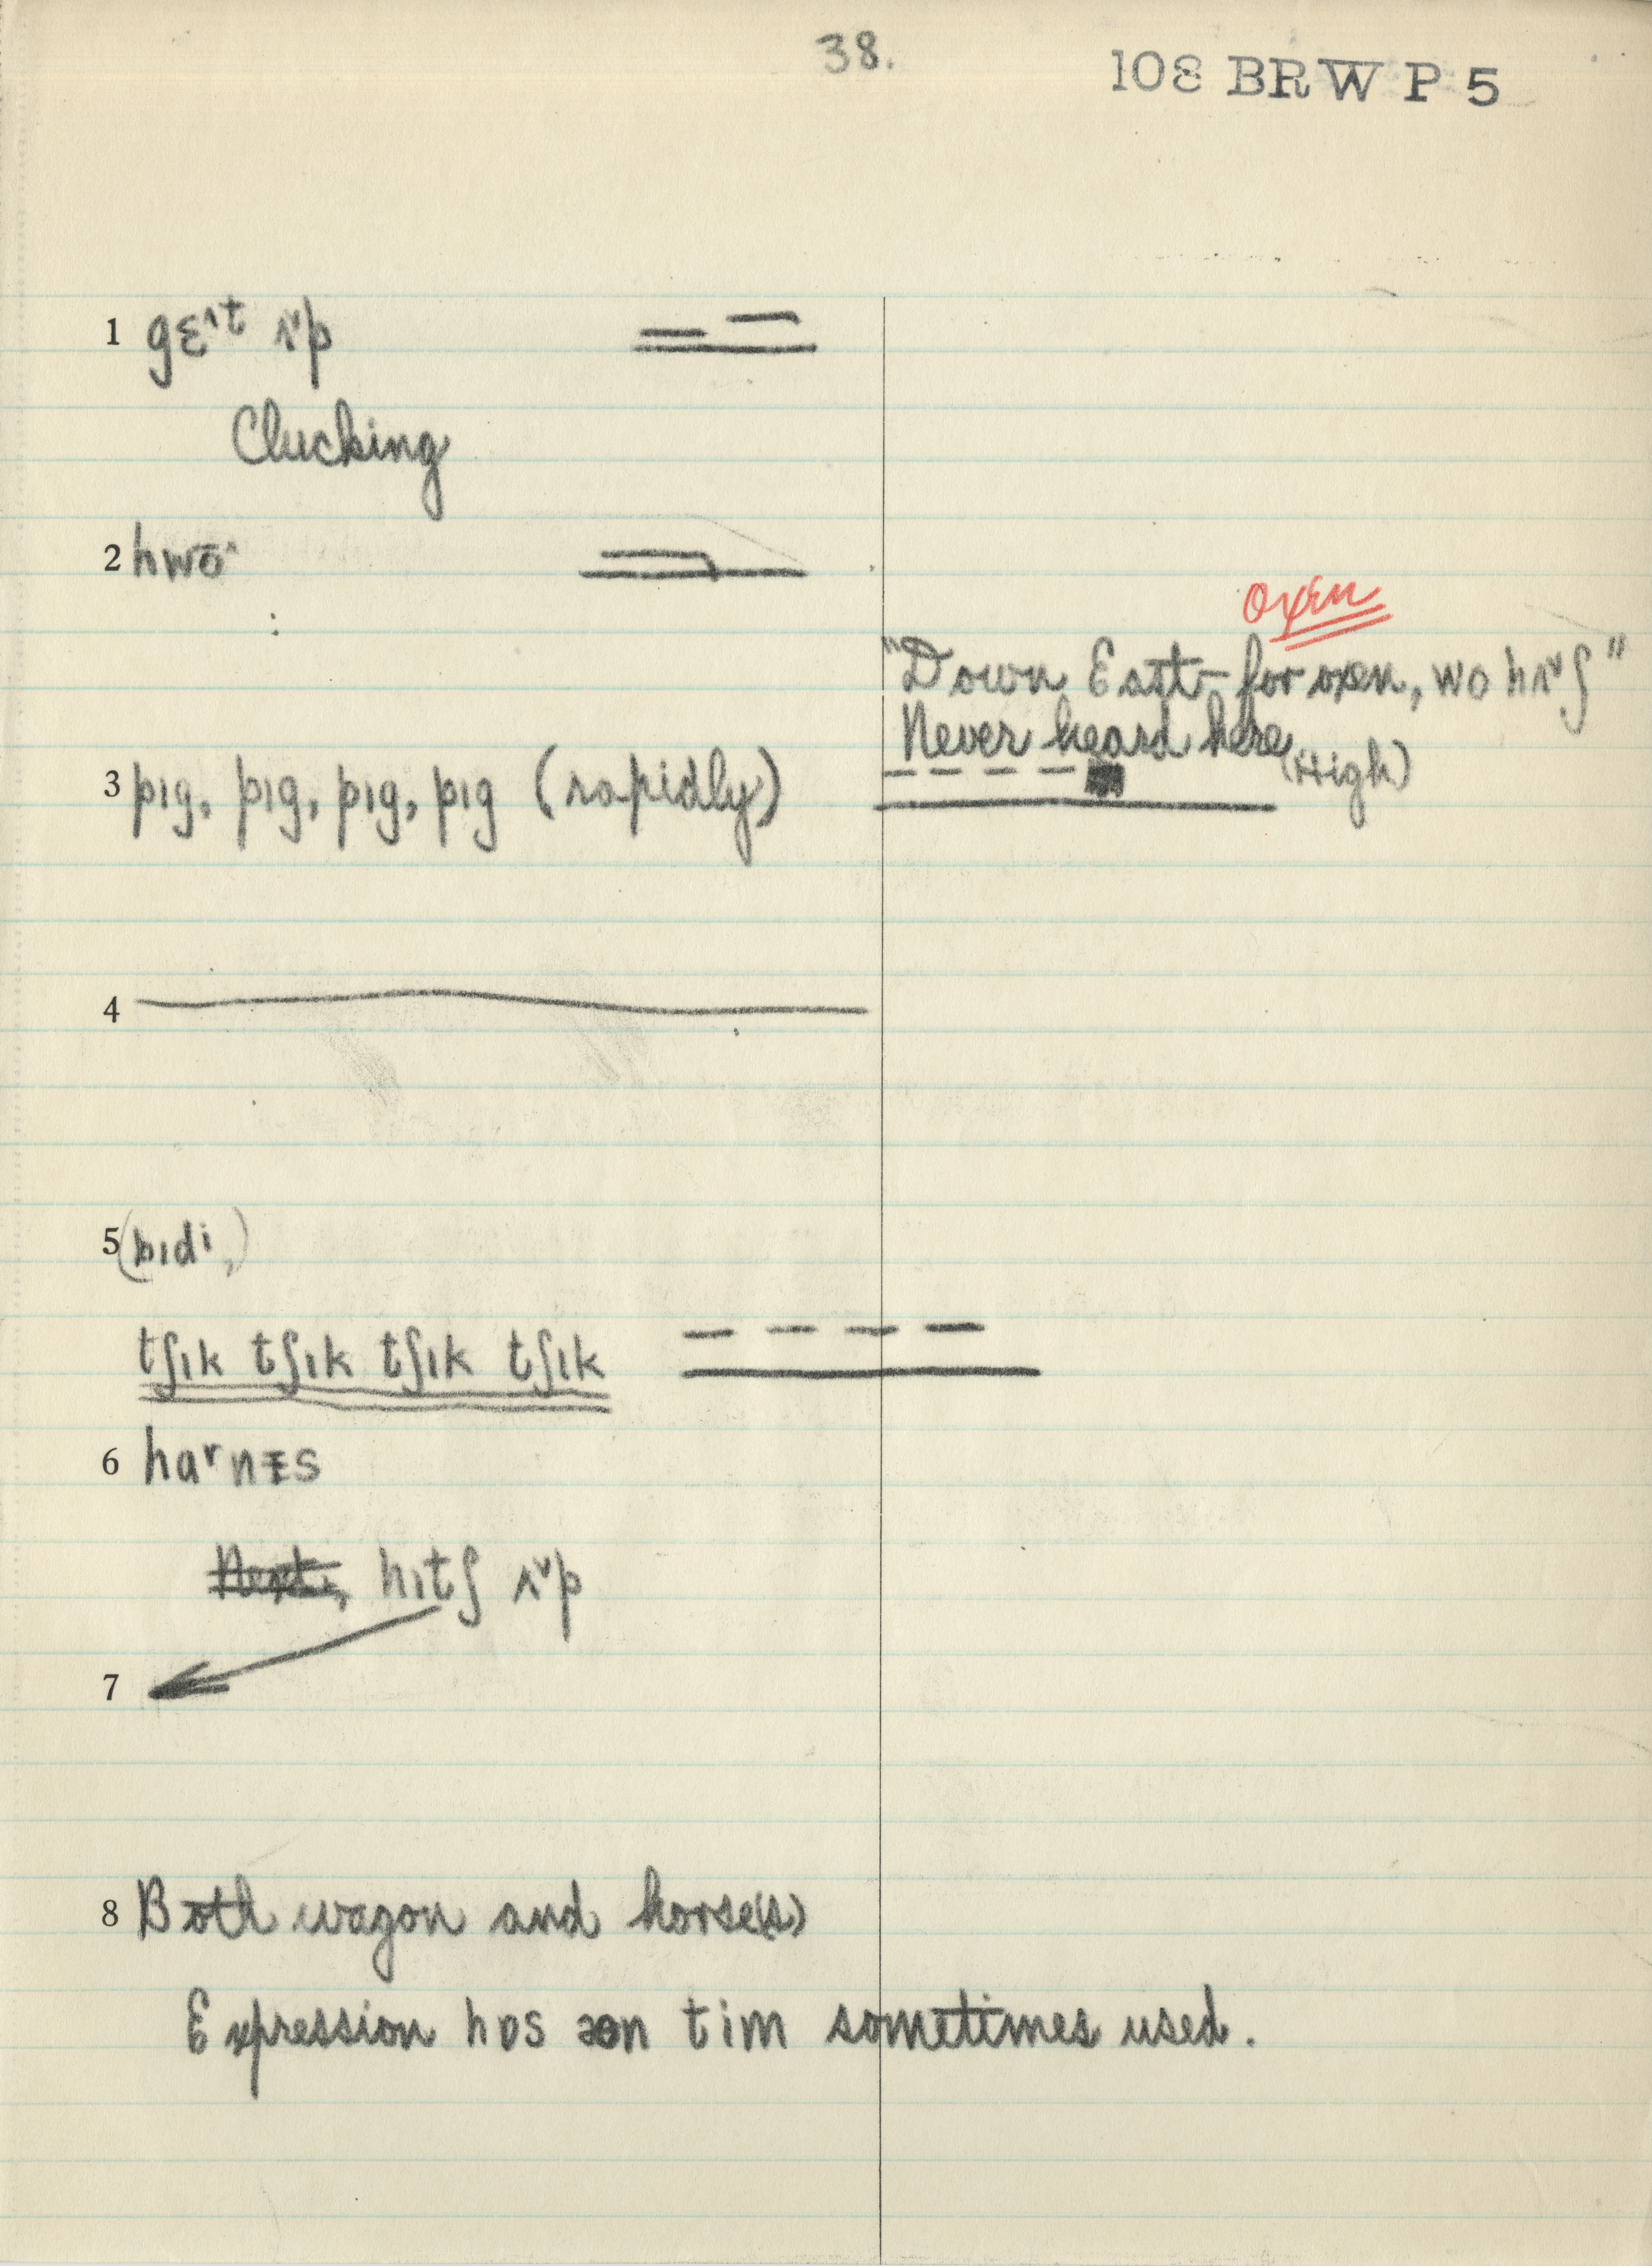 38.
108 BRW P 5
1 gɛ˄t ʌ˅p
Clucking
2 hwō˄
oxen
"Down East – for oxen, wo hʌ˅ʃ"
Never heard here
3 pɪg, pɪg, pɪg, pɪg (rapidly) (High)
4
5 (bɪdi,)
tʃɪk tʃɪk tʃɪk tʃɪk
6 ha˅nɪs
hɪtʃ ʌ˅p
7
8 Both wagon and horse(s)
Expression hɒs ən tim sometimes used.